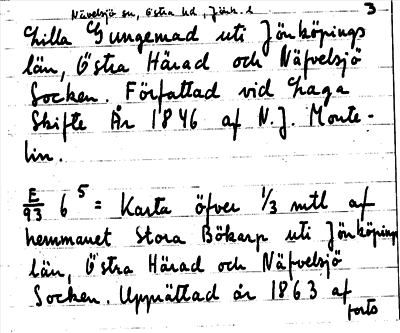 Nävelsjö sn, Östra hd, Jönk. l
3
Lilla Gungemad uti Jönköpings
län, Östra Härad och Näfvelsjö
Socken. Författad vid Laga
Skifte År 1846 af N. J. Monte-
lin.
E/93 6⁵ = Karta öfver 1/3 mtl af
hemmanet Stora Bökarp uti Jönköpings
län, Östra Härad och Näfvelsjö
Socken. Upprättad år 1863 af